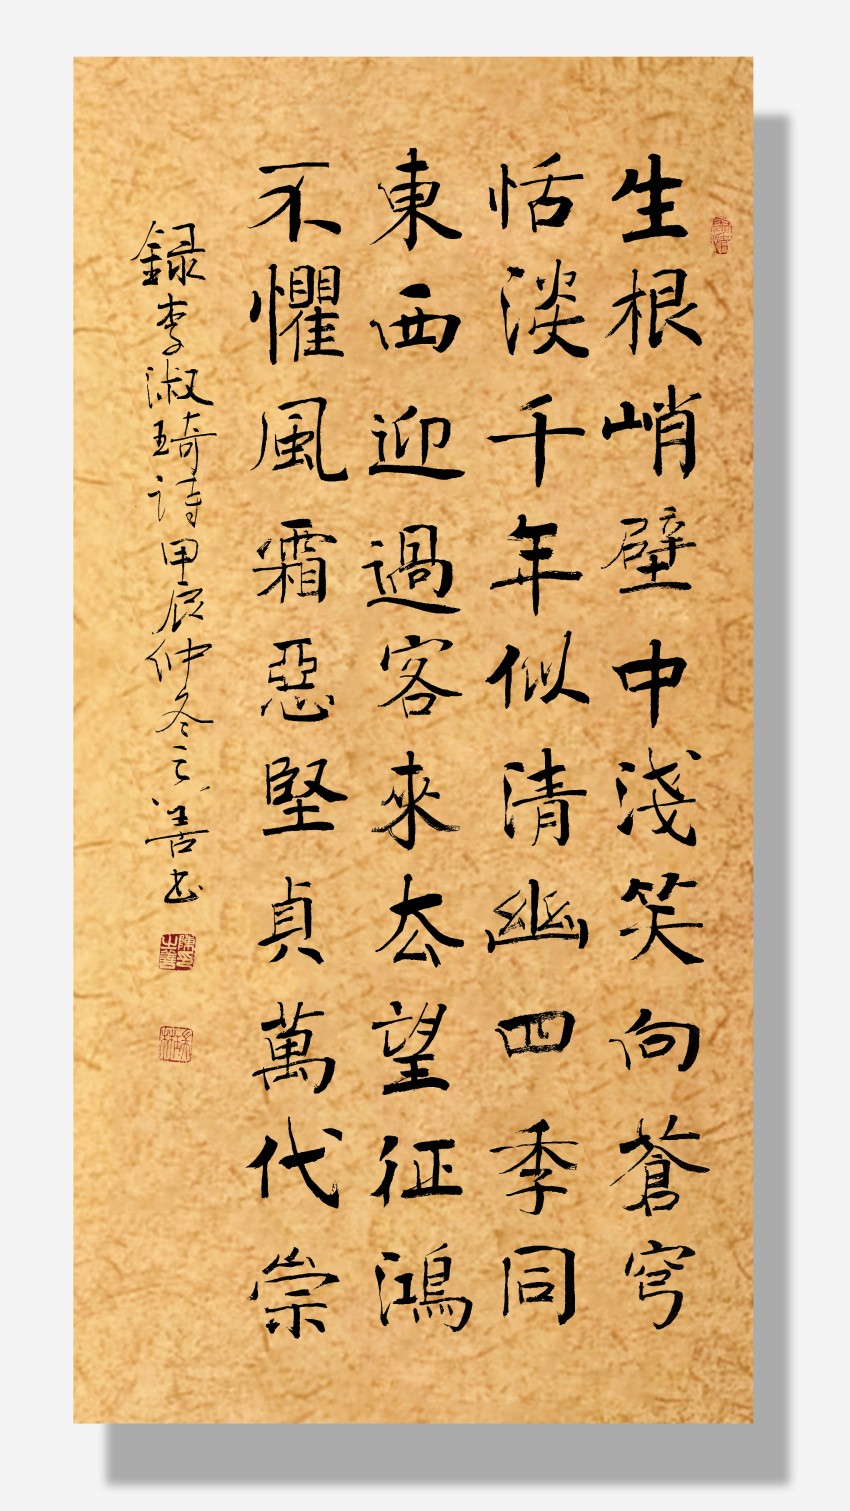 生根峭壁中淺笑向蒼穹
恬淡千年似清幽四季同
東西迎過客來去望征鴻
不懼風霜惡堅貞萬代崇
録李淑琦詩甲辰仲冬之善书